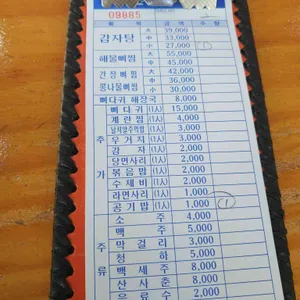 09885
품 목 금 액 수 량
감자탕 大 39,000
中 33,000
小 27,000
해물뼈찜 大 55,000
中 45,000
간장뼈찜 大 42,000
콩나물뼈찜 中 36,000
小 30,000
뼈다귀 해장국 8,000
뼈다귀 (1人) 15,000
계란찜 (1人) 3,000
날치알주먹밥 (1人) 3,000
우거지 (1人) 3,000
감자 (1人) 2,000
당면사리 (1人) 2,000
볶음밥 (1人) 2,000
수제비 (1人) 2,000
라면사리 (1人) 1,000
공기밥 (1人) 1,000 1
추가
소주 4,000
맥주 5,000
막걸리 3,000
청하 5,000
백세주 8,000
산사춘 8,000
음료수 2,000
주류